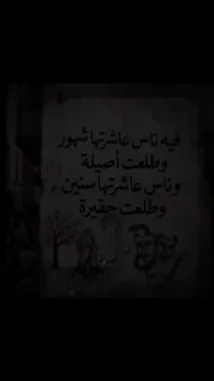 فيه ناس عاشرتها شهور
وطلعت أصيلة
وناس عاشرتها سنين
وطلعت حقيرة